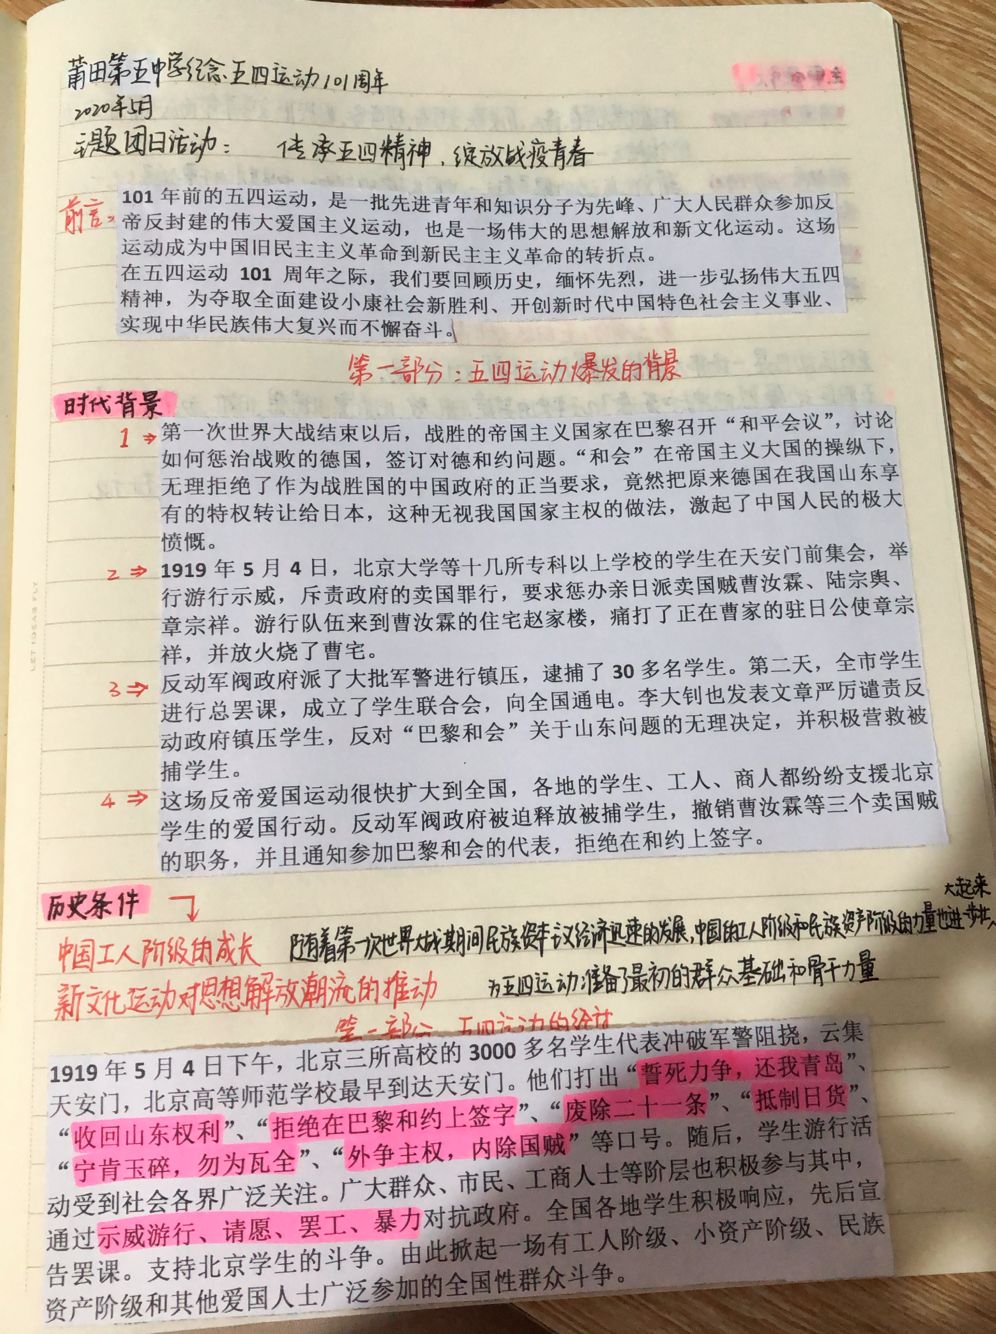 莆田第五中学纪念五四运动101周年
2020年5月
主题团日活动： 传承五四精神，绽放战疫青春
前言：
101 年前的五四运动，是一批先进青年和知识分子为先锋、广大人民群众参加反
帝反封建的伟大爱国主义运动，也是一场伟大的思想解放和新文化运动。这场
运动成为中国旧民主主义革命到新民主主义革命的转折点。
在五四运动 101 周年之际，我们要回顾历史，缅怀先烈，进一步弘扬伟大五四
精神，为夺取全面建设小康社会新胜利、开创新时代中国特色社会主义事业、
实现中华民族伟大复兴而不懈奋斗。
第一部分：五四运动爆发的背景
时代背景
1→ 第一次世界大战结束以后，战胜的帝国主义国家在巴黎召开“和平会议”，讨论
如何惩治战败的德国，签订对德和约问题。“和会”在帝国主义大国的操纵下，
无理拒绝了作为战胜国的中国政府的正当要求，竟然把原来德国在我国山东享
有的特权转让给日本，这种无视我国国家主权的做法，激起了中国人民的极大
愤慨。
2⇒ 1919 年 5 月 4 日，北京大学等十几所专科以上学校的学生在天安门前集会，举
行游行示威，斥责政府的卖国罪行，要求惩办亲日派卖国贼曹汝霖、陆宗舆、
章宗祥。游行队伍来到曹汝霖的住宅赵家楼，痛打了正在曹家的驻日公使章宗
祥，并放火烧了曹宅。
3⇒ 反动军阀政府派了大批军警进行镇压，逮捕了 30 多名学生。第二天，全市学生
进行总罢课，成立了学生联合会，向全国通电。李大钊也发表文章严厉谴责反
动政府镇压学生，反对“巴黎和会”关于山东问题的无理决定，并积极营救被
捕学生。
4⇒ 这场反帝爱国运动很快扩大到全国，各地的学生、工人、商人都纷纷支援北京
学生的爱国行动。反动军阀政府被迫释放被捕学生，撤销曹汝霖等三个卖国贼
的职务，并且通知参加巴黎和会的代表，拒绝在和约上签字。
历史条件
中国工人阶级的成长 随着第一次世界大战期间民族资本主义经济迅速的发展，中国的工人阶级和民族资产阶级的力量也进一步壮
大起来
新文化运动对思想解放潮流的推动 为五四运动准备了最初的群众基础和骨干力量
1919 年 5 月 4 日下午，北京三所高校的 3000 多名学生代表冲破军警阻挠，云集
天安门，北京高等师范学校最早到达天安门。他们打出“誓死力争，还我青岛”、
“收回山东权利”、“拒绝在巴黎和约上签字”、“废除二十一条”、“抵制日货”、
“宁肯玉碎，勿为瓦全”、“外争主权，内除国贼”等口号。随后，学生游行活
动受到社会各界广泛关注。广大群众、市民、工商人士等阶层也积极参与其中，
通过示威游行、请愿、罢工、暴力对抗政府。全国各地学生积极响应，先后宣
告罢课。支持北京学生的斗争。由此掀起一场有工人阶级、小资产阶级、民族
资产阶级和其他爱国人士广泛参加的全国性群众斗争。